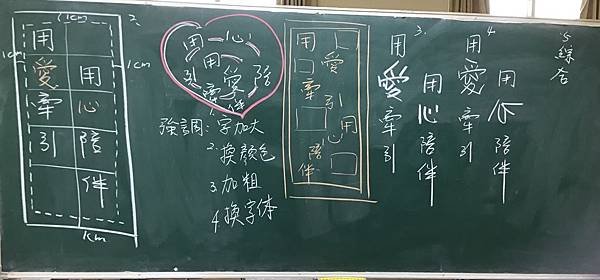 1cm
1cm
1cm
1cm
用愛牽引
用心陪伴
2、
用心陪伴
用愛牽引
強調：1.字加大
2.換顏色
3 加粗
4 換字体
用愛牽引
用心陪伴
3.
用愛牽引
用心陪伴
4.
用愛牽引
用心陪伴
5、綜合